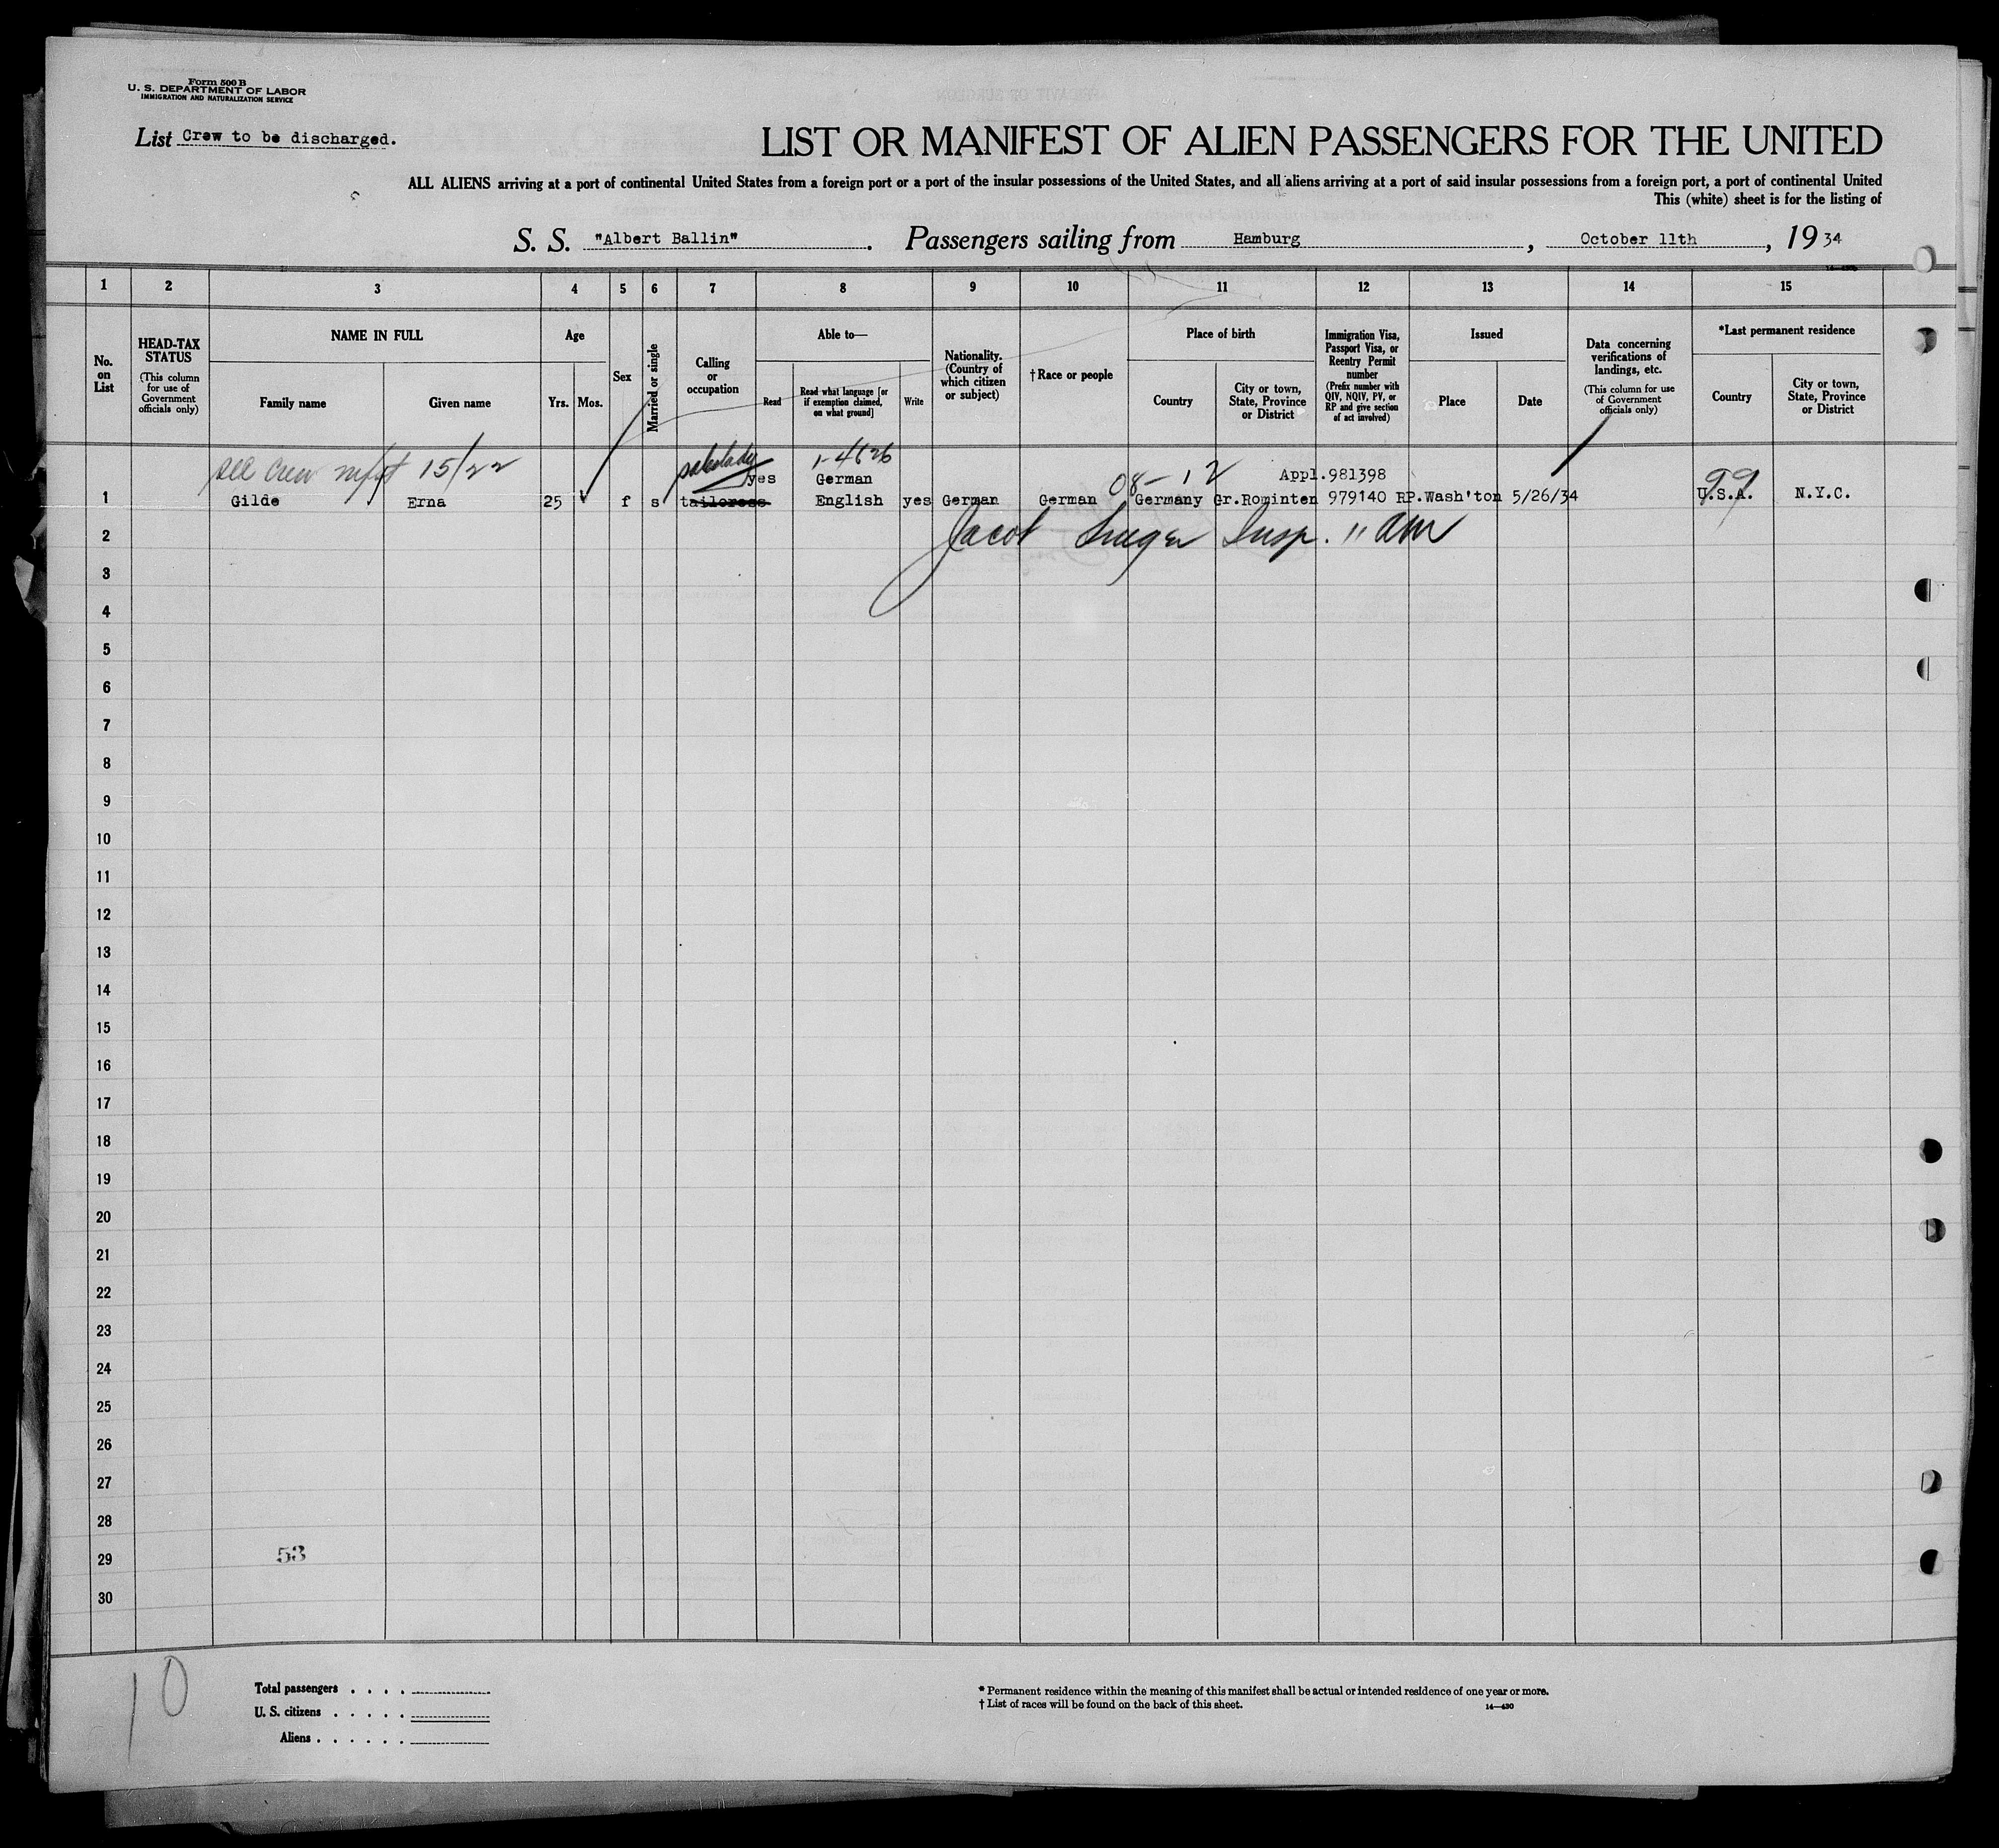 Form 500 B
U. S. DEPARTMENT OF LABOR
IMMIGRATION AND NATURALIZATION SERVICE
List Crew to be discharged.
LIST OR MANIFEST OF ALIEN PASSENGERS FOR THE UNITED
ALL ALIENS arriving at a port of continental United States from a foreign port or a port of the insular possessions of the United States, and all aliens arriving at a port of said insular possessions from a foreign port, a port of continental United
This (white) sheet is for the listing of
S. S. "Albert Ballin". Passengers sailing from Hamburg, October 11th, 19 34
1 2 3 4 5 6 7 8 9 10 11 12 13 14 15
No. on List
HEAD-TAX STATUS
(This column for use of Government officials only)
NAME IN FULL
Family name Given name
Age
Yrs. Mos.
Sex
Married or single
Calling or occupation
Able to—
Read
Read what language [or if exemption claimed, on what ground]
Write
Nationality. (Country of which citizen or subject)
† Race or people
Place of birth
Country
City or town, State, Province or District
Immigration Visa, Passport Visa, or Reentry Permit number
(Prefix number with QIV, NQIV, PV, or RP and give section of act involved)
Issued
Place Date
Data concerning verifications of landings, etc.
(This column for use of Government officials only)
*Last permanent residence
Country
City or town, State, Province or District
see crew mfst 15/22 saleslady 1-4626
yes German 08-12 Appl.981398 99
1 Gilde Erna 25 f s tailoress English yes German German Germany Gr.Rominten 979140 RP.Wash'ton 5/26/34 U.S.A. N.Y.C.
2 Jacob Insp. 11 AM
3
4
5
6
7
8
9
10
11
12
13
14
15
16
17
18
19
20
21
22
23
24
25
26
27
28
29 53
30
10
Total passengers . . . .
U. S. citizens . . . . .
Aliens . . . . . .
* Permanent residence within the meaning of this manifest shall be actual or intended residence of one year or more.
† List of races will be found on the back of this sheet.
14—430